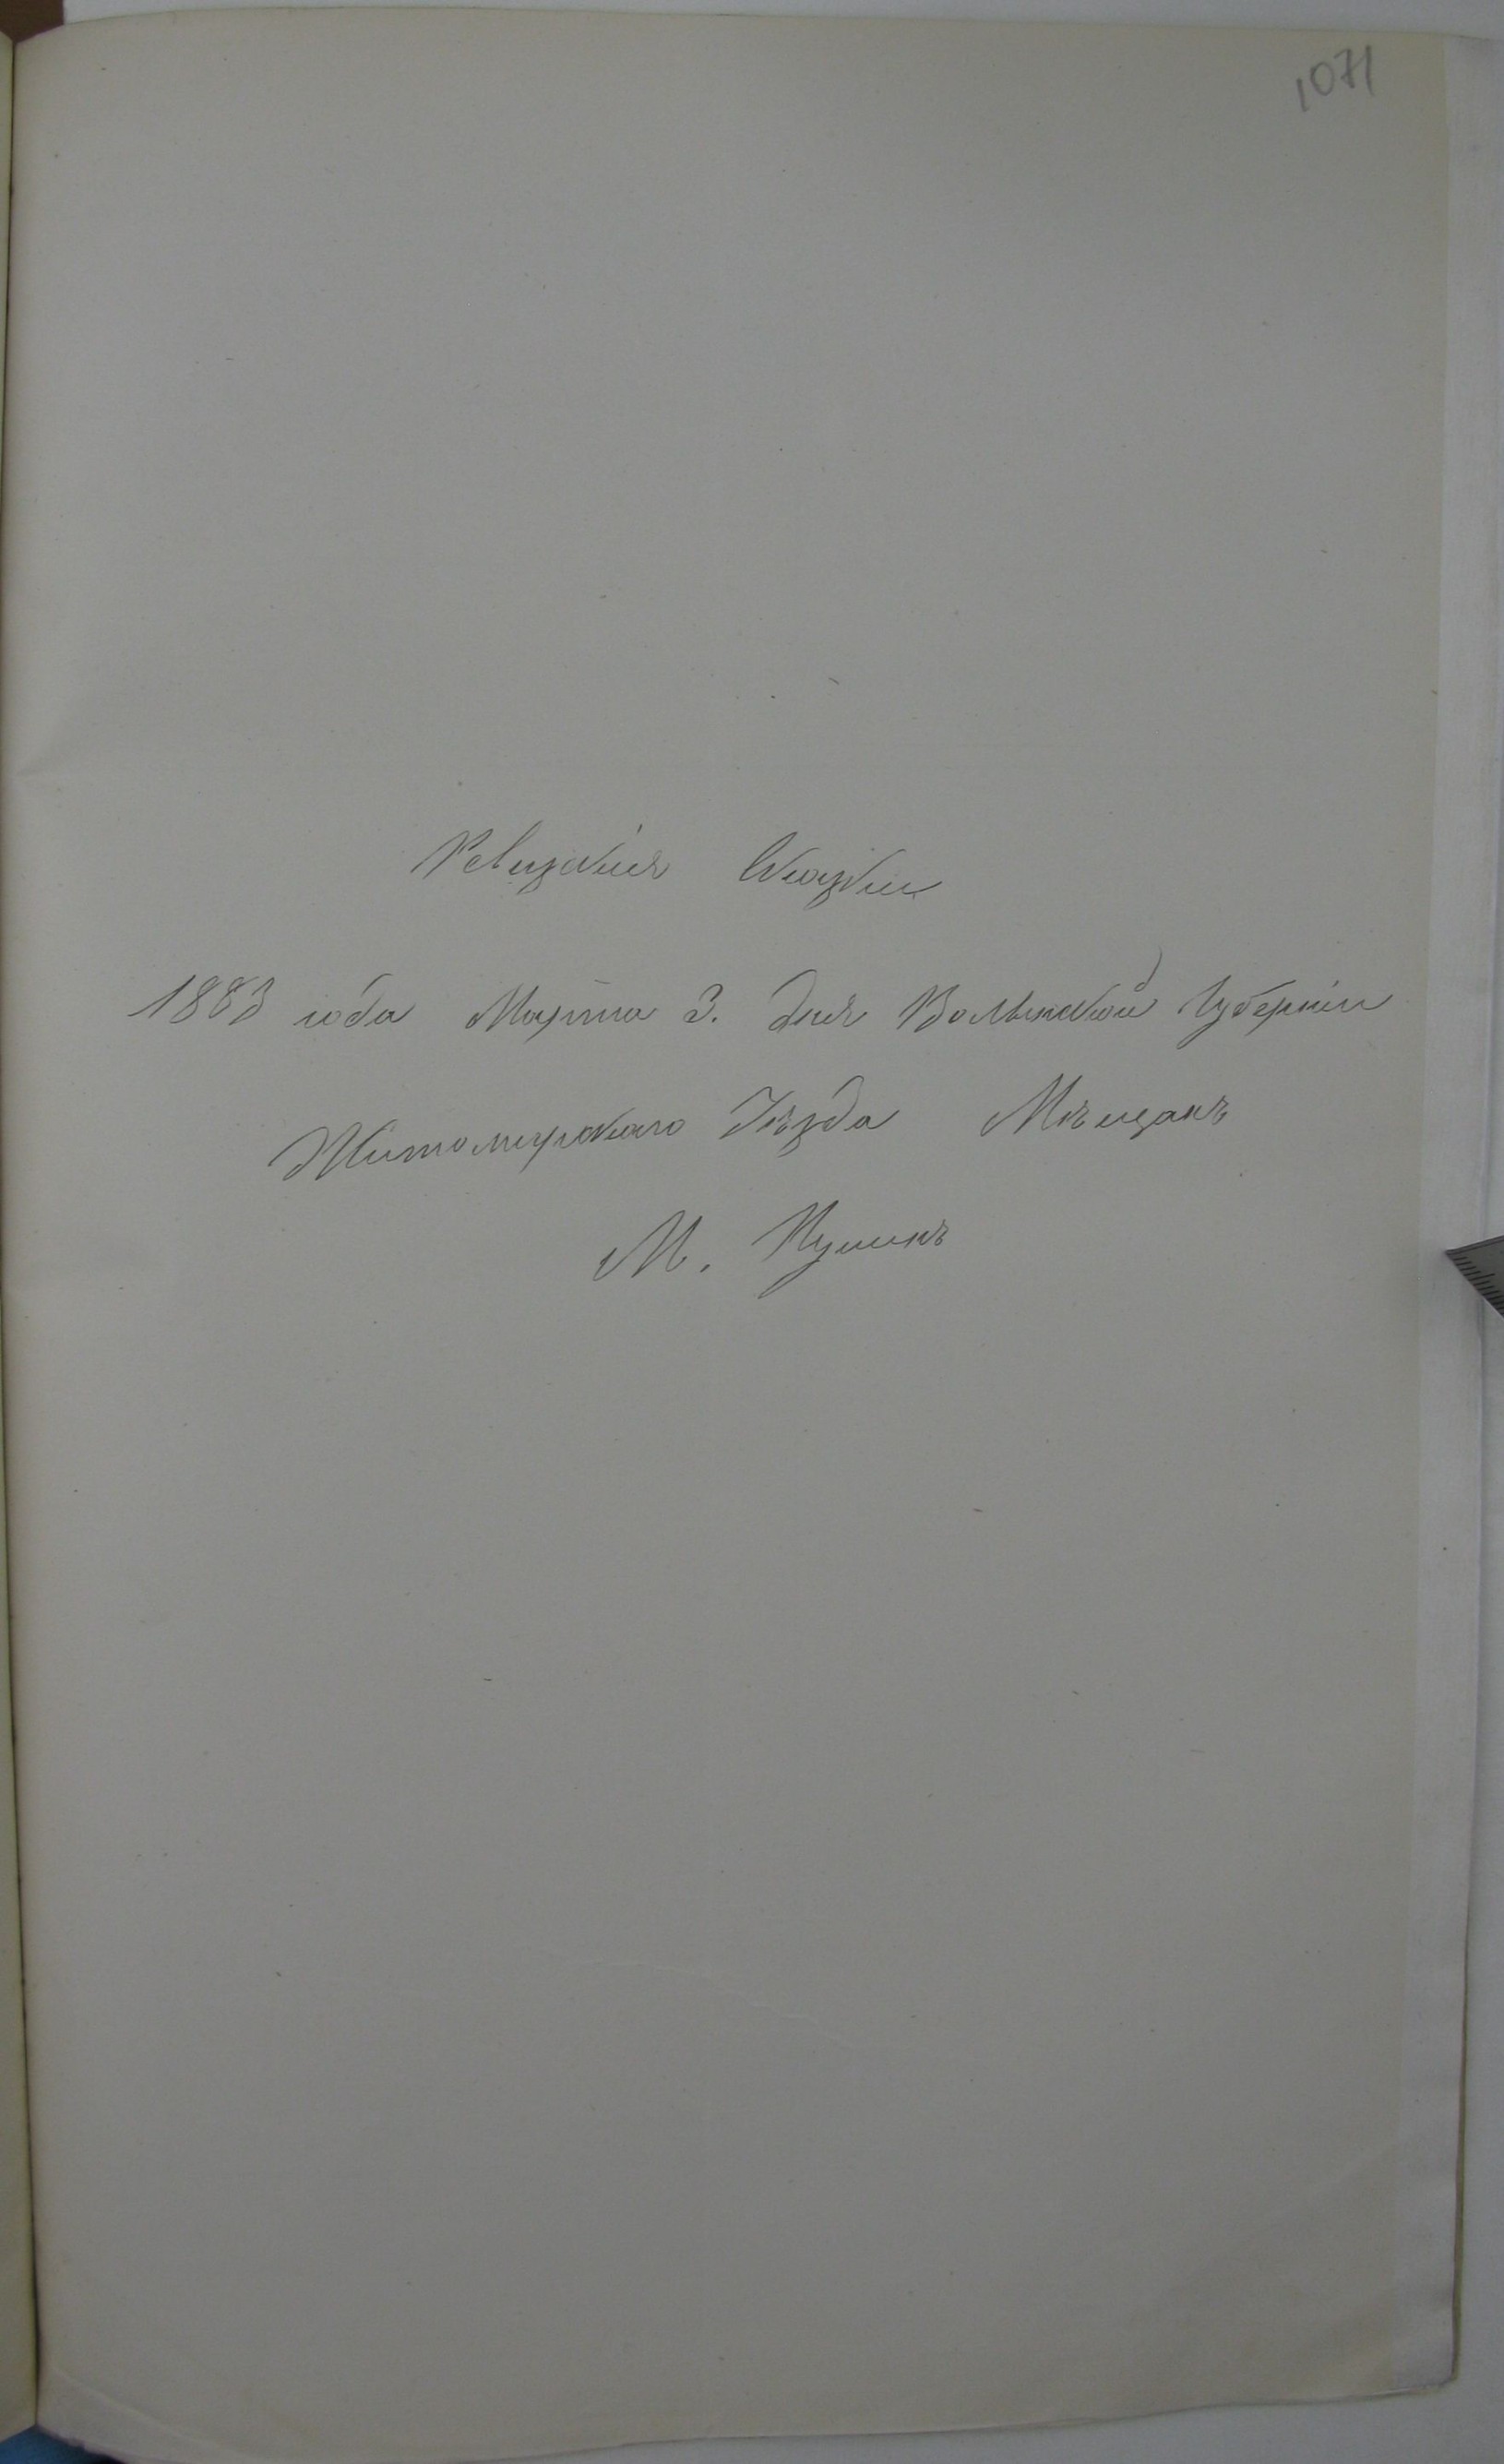 1071
Ревизкія Сказки
1883 года Марта 3. дня Волынской Губерніи
Житомирскаго Уѣзда Мѣщанъ
М.